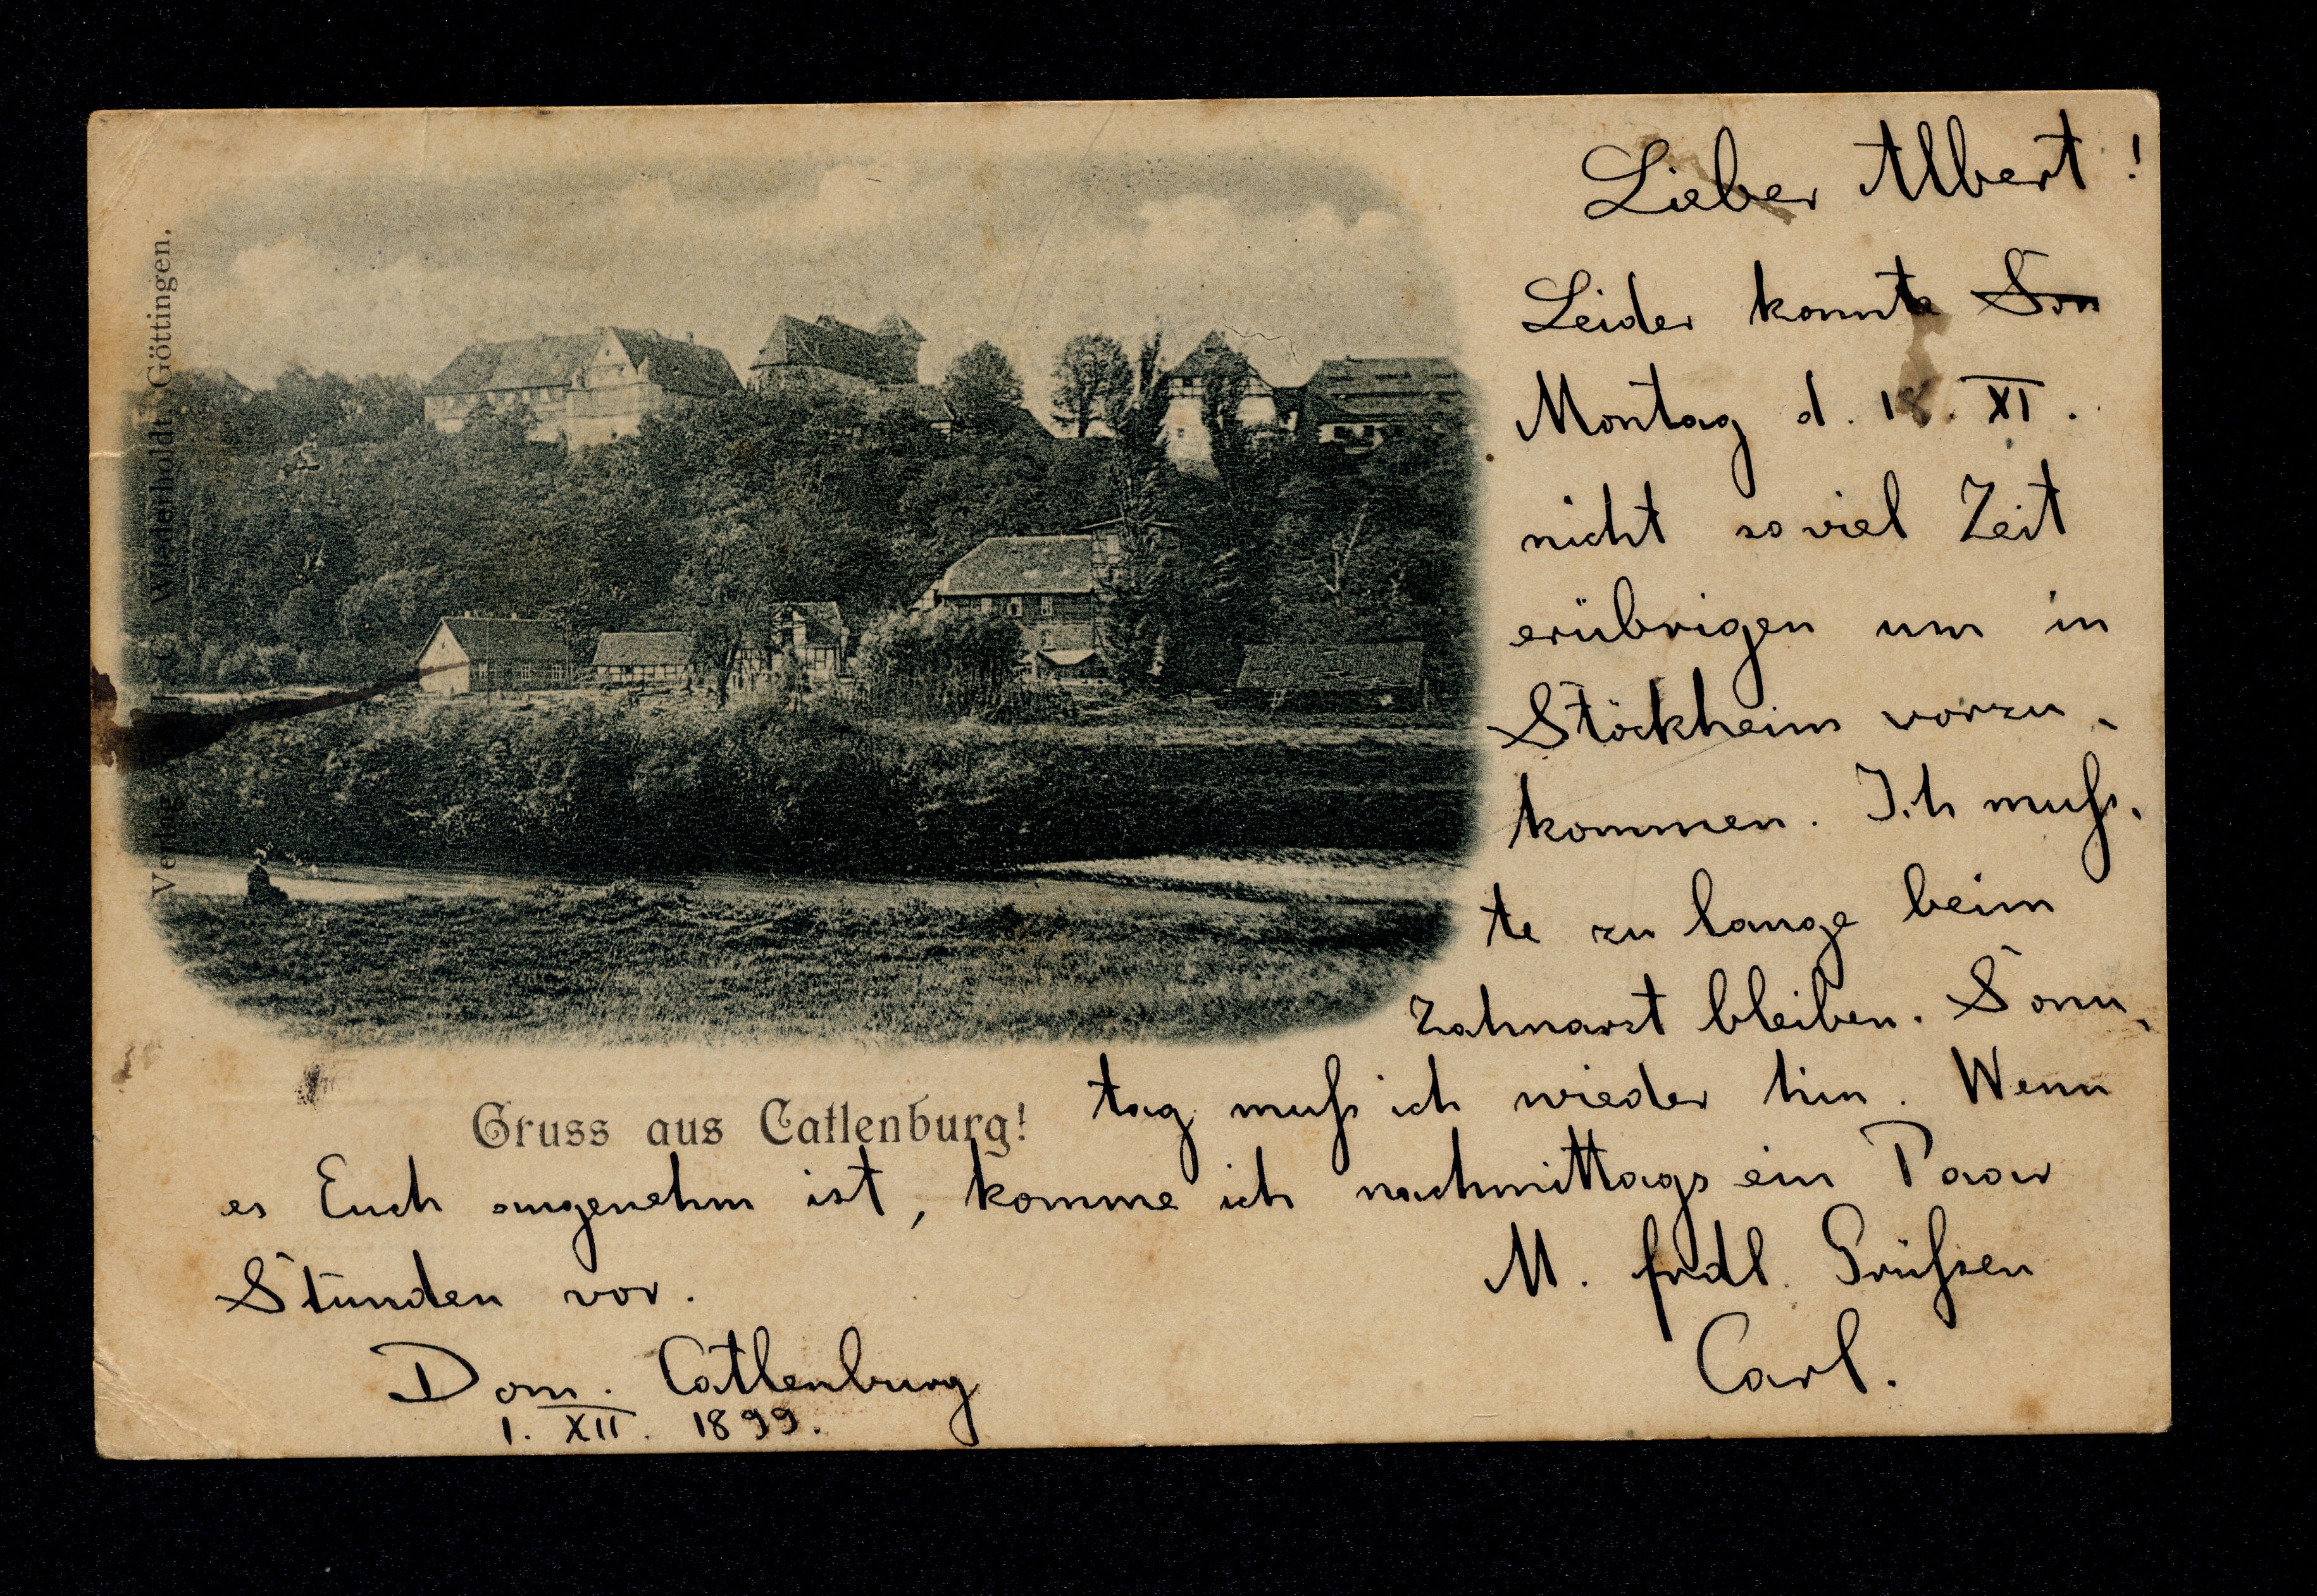 Lieber Albert!
Leider konnte Son
Montag d. 18. XI.
nicht so viel Zeit
erübrigen um in
Stöckheim vorzu-
kommen. Ich muß-
te zu lange beim
Zahnarzt bleiben. Sonn-
tag muß ich wieder hin. Wenn
es Euch angenehm ist, komme ich nachmittags ein Paar
Stunden vor.
M. frdl. Grüßen
Carl.
Dom. Catlenburg
1. XII. 1899.
Gruss aus Catlenburg!
Verlag C. Wiederholdt, Göttingen.